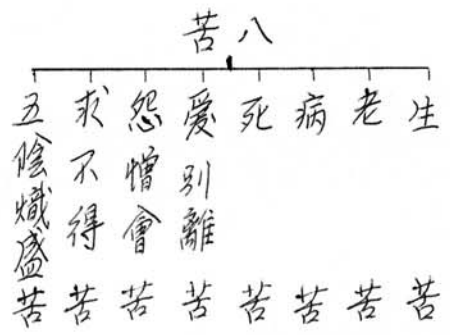 八苦
生苦
老苦
病苦
死苦
愛別離苦
怨憎會苦
求不得苦
五陰熾盛苦